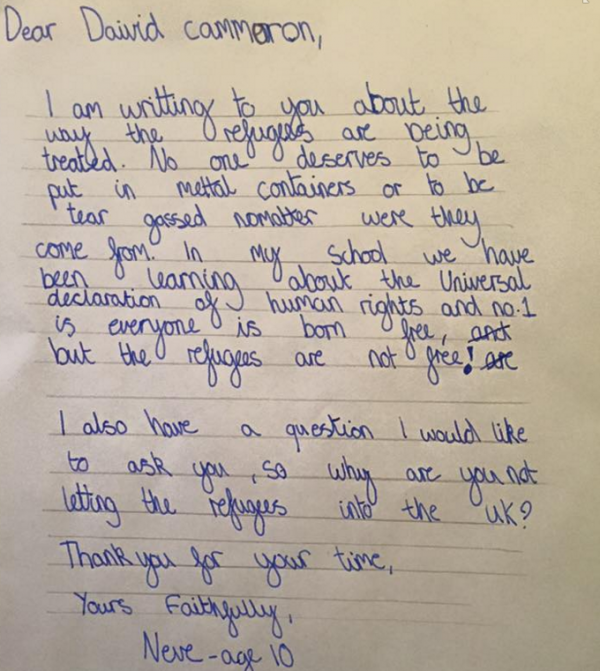 Dear Daivid cammeron,
I am writting to you about the
way the refugees are being
treated. No one deserves to be
put in mettal containers or to be
tear gassed nomatter were they
come from. In my school we have
been learning about the Universal
declaration of human rights and no.1
is everyone is born free, and
but the refugees are not free! are
I also have a question I would like
to ask you, so why are you not
letting the refugees into the UK?
Thankyou for your time,
Yours Faithfully,
Neve-age 10